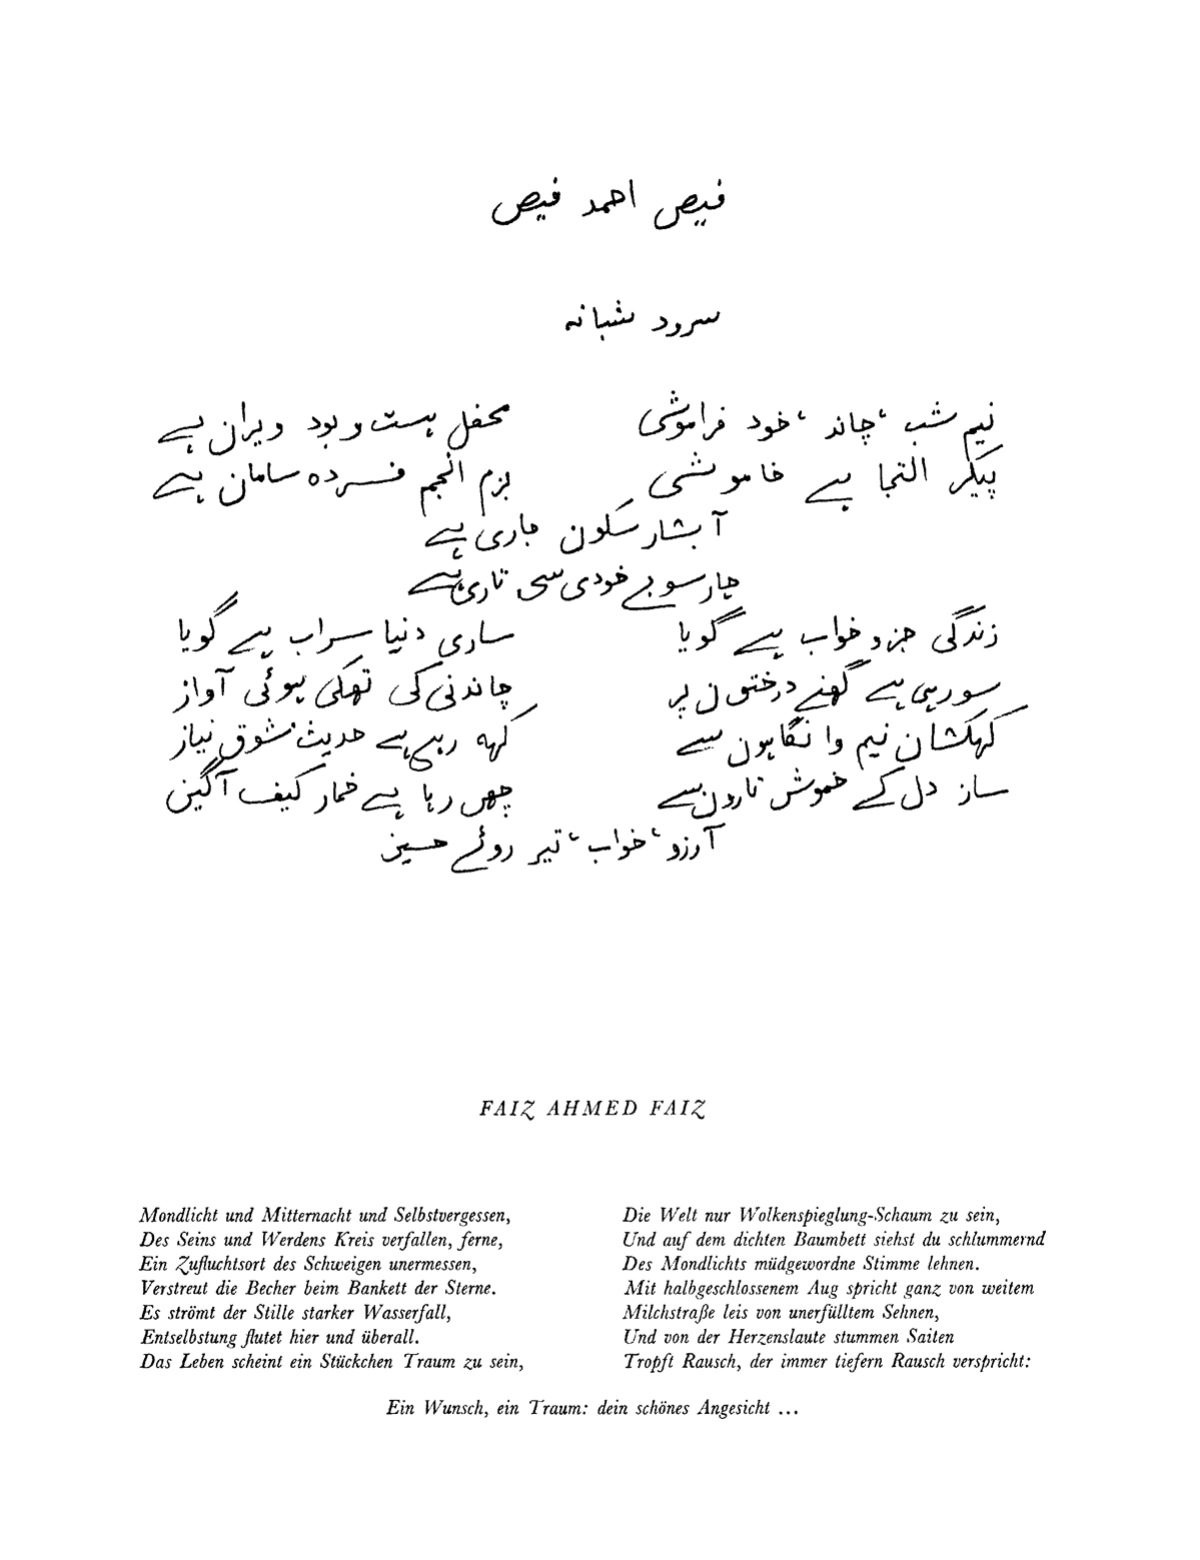 فیض احمد فیض
سرود شبانہ
نیم شب، چاند، خود فراموشی محفل ہست و بود ویران ہے
پیکر التجا ہے خاموشی بزم انجم فسردہ سامان ہے
آبشار سکون جاری ہے
چار سو بے خودی سی تاری ہے
زندگی جزو خواب ہے گویا ساری دنیا سراب ہے گویا
سو رہی ہے گھنے درختون پر چاندنی کی تھکی ہوئی آواز
کہکشان نیم وا نگاہون سے کہہ رہی ہے حدیث شوق نیاز
ساز دل کے خموش تارون سے چھن رہا ہے خمار کیف آگین
آرزو، خواب، تیر روئے حسین
FAIZ AHMED FAIZ
Mondlicht und Mitternacht und Selbstvergessen,
Des Seins und Werdens Kreis verfallen, ferne,
Ein Zufluchtsort des Schweigen unermessen,
Verstreut die Becher beim Bankett der Sterne.
Es strömt der Stille starker Wasserfall,
Entselbstung flutet hier und überall.
Das Leben scheint ein Stückchen Traum zu sein,
Die Welt nur Wolkenspieglung-Schaum zu sein,
Und auf dem dichten Baumbett siehst du schlummernd
Des Mondlichts müdgewordne Stimme lehnen.
Mit halbgeschlossenem Aug spricht ganz von weitem
Milchstraße leis von unerfülltem Sehnen,
Und von der Herzenslaute stummen Saiten
Tropft Rausch, der immer tiefern Rausch verspricht:
Ein Wunsch, ein Traum: dein schönes Angesicht ...